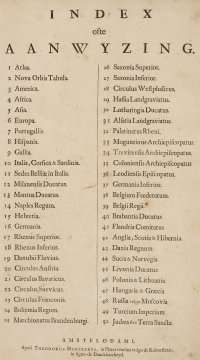 INDEX
ofte
AANWYZING.
1 Atlas.
2 Nova Orbis Tabula.
3 America.
4 Africa.
5 Asia.
6 Europa.
7 Portugallia.
8 Hispania.
9 Gallia.
10 Italia, Corsica & Sardinia.
11 Sedes Bellicæ in Italia.
12 Milanensis Ducatus.
13 Mantua Ducatus.
14 Naples Regnum.
15 Helvetia.
16 Germania.
17 Rhenus Superior.
18 Rhenus Inferior.
19 Danubii Fluvius.
20 Circulus Austria.
21 Circulus Bavaricus.
22 Circulus Suevicus.
23 Circulus Franconiæ.
24 Bohemia Regnum.
25 Marchionatus Brandenburgi.
26 Saxonia Superior.
27 Saxonia Inferior.
28 Circulus Westphalicus.
29 Hassia Landgraviatus.
30 Lotharingia Ducatus.
31 Alsatia Landgraviatus.
32 Palatinatus Rheni.
33 Moguntinus Archiepiscopatus
34 Trevirensis Archiepiscopatus.
35 Coloniensis Archiepiscopatus.
36 Leodiensis Episcopatus.
37 Germania Inferior.
38 Belgium Fœderatum.
39 Belgii Regii.
40 Brabantia Ducatus.
41 Flandria Comitatus
42 Anglia, Scotia & Hibernia
43 Dania Regnum
44 Suecia & Norvegia.
45 Livonia Ducatus
46 Polonia & Lithuania
47 Hungaria & Græcia
48 Russia vulgo Moscovia.
49 Turcicum Imperium.
50 Terra Sancta.
AMSTELODAMI,
Apud THEODORUM DANCKERTS,